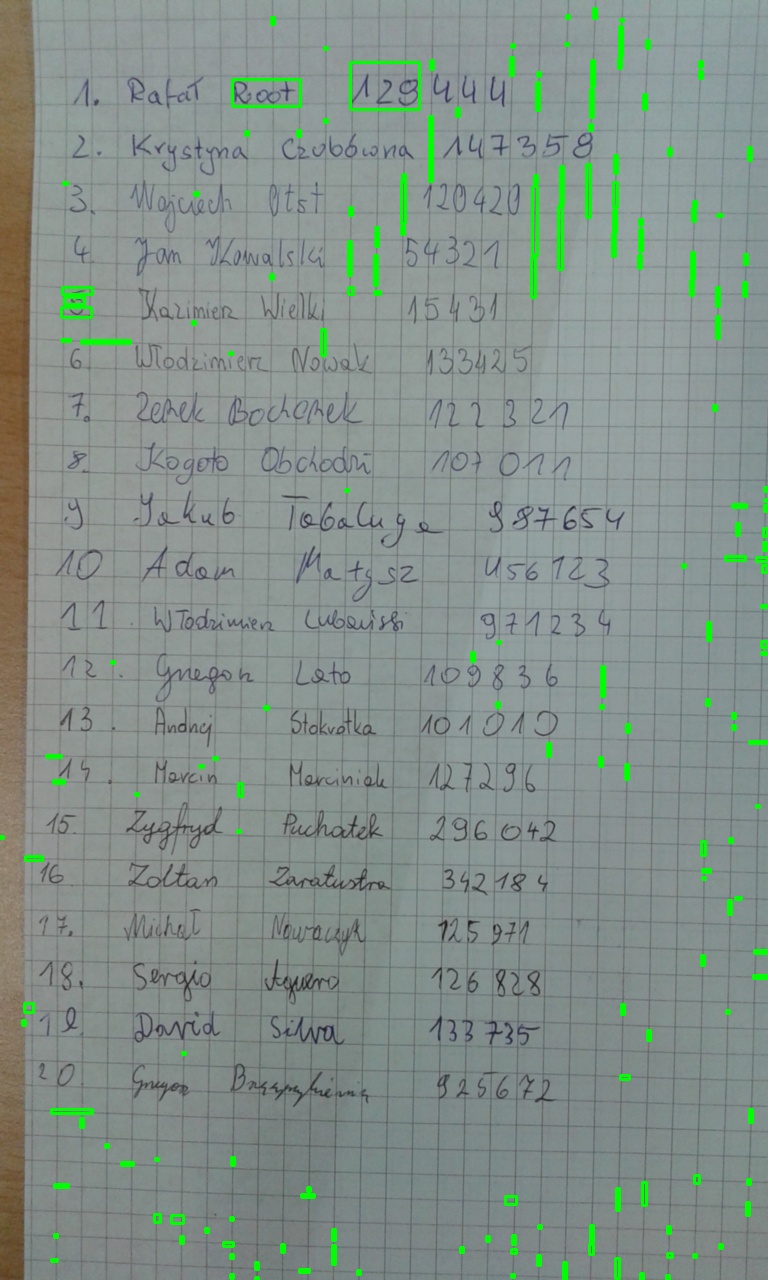 1. Rafał Root 129444
2. Krystyna Czubówna 147358
3. Wojciech Otst 120420
4. Jan Kowalski 54321
5 Kazimierz Wielki 15431
6. Włodzimierz Nowak 133425
7. Zenek Bochenek 122321
8. Kogoto Obchodzi 107011
9 Jakub Tabaluga 987654
10 Adam Małysz 456123
11. Włodzimierz Lubański 971234
12. Grzegorz Lato 109836
13. Andrzej Stokrotka 101010
14. Marcin Marciniak 127296
15. Zygfryd Puchatek 296042
16. Zoltan Zaratustra 342184
17. Michał Nowaczyk 125971
18. Sergio Aguero 126828
19. David Silva 133735
20 Grzegorz 925672